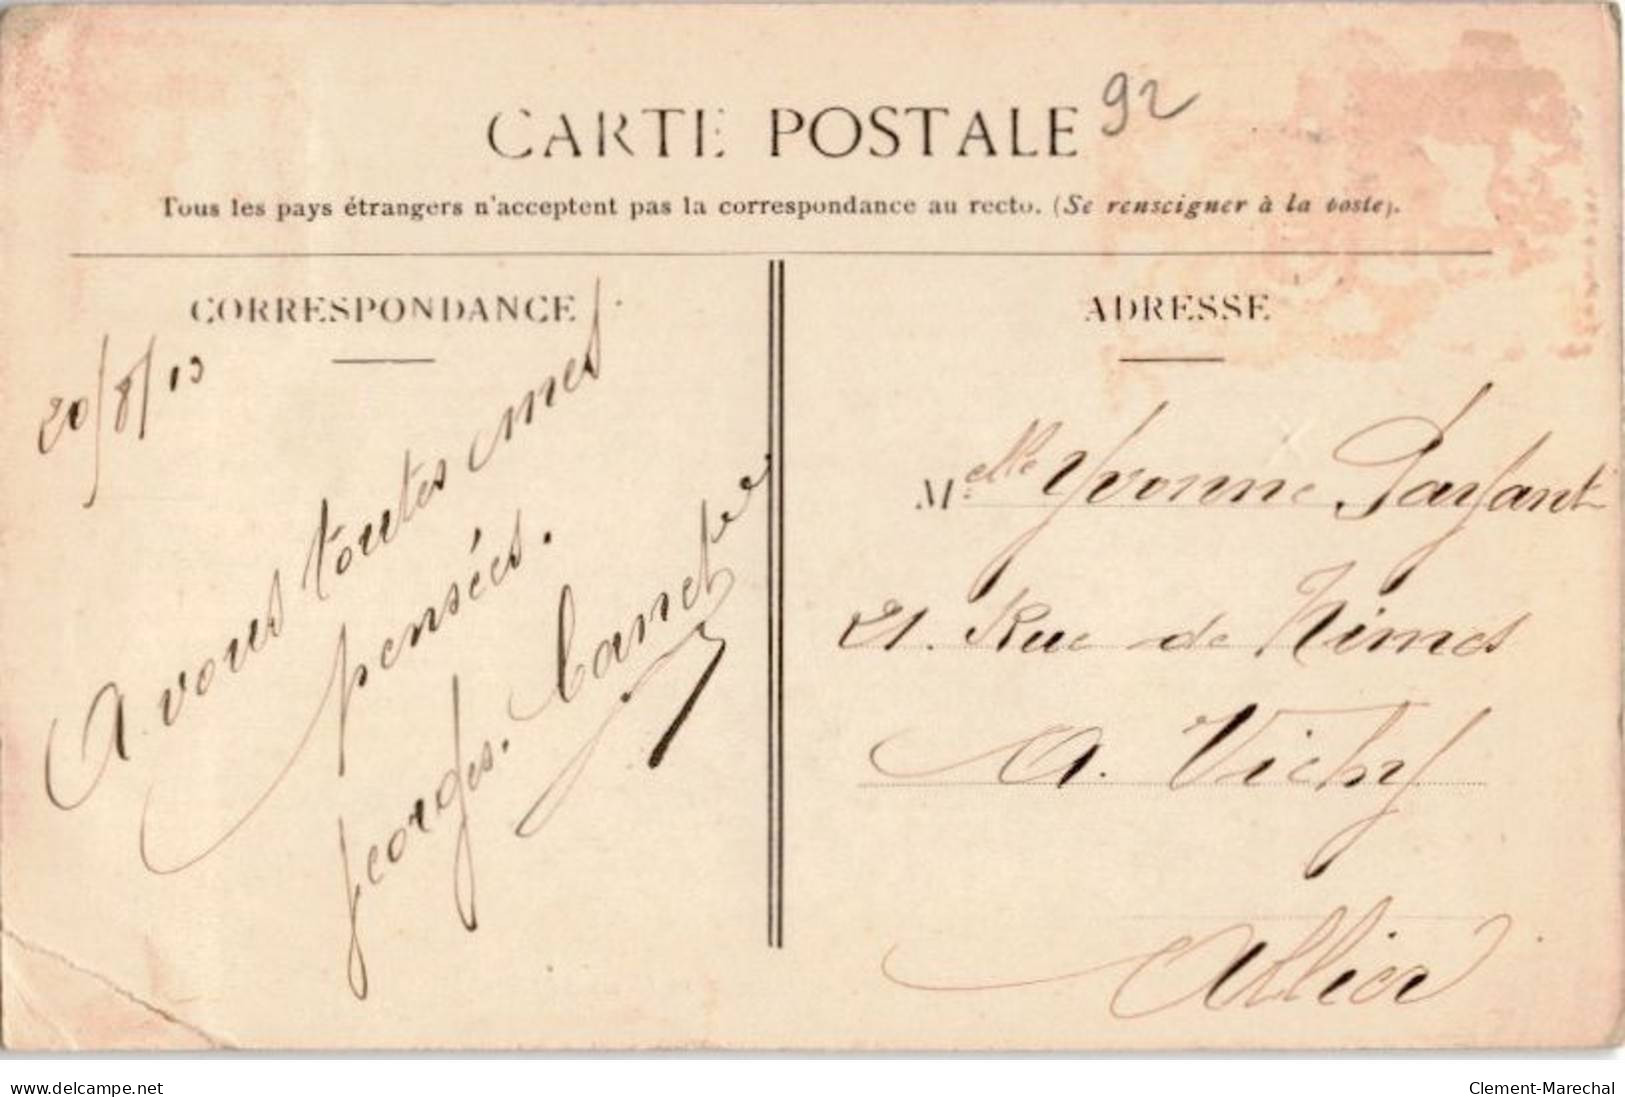 CARTE POSTALE 92
Tous les pays étrangers n'acceptent pas la correspondance au recto. (Se renseigner à la poste).
CORRESPONDANCE
20/8/13
A vous toutes mes
pensées.
georges.
ADRESSE
Melle Yvonne Parfant
21. Rue de Nimes
A. Vichy
Allier
www.delcampe.net
Clement-Marechal